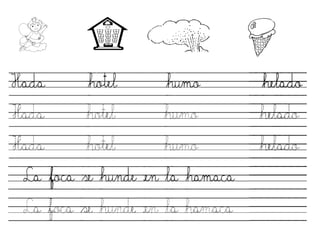 Hada hotel humo helado
Hada hotel humo helado
Hada hotel humo helado
La foca se hunde en la hamaca
La foca se hunde en la hamaca